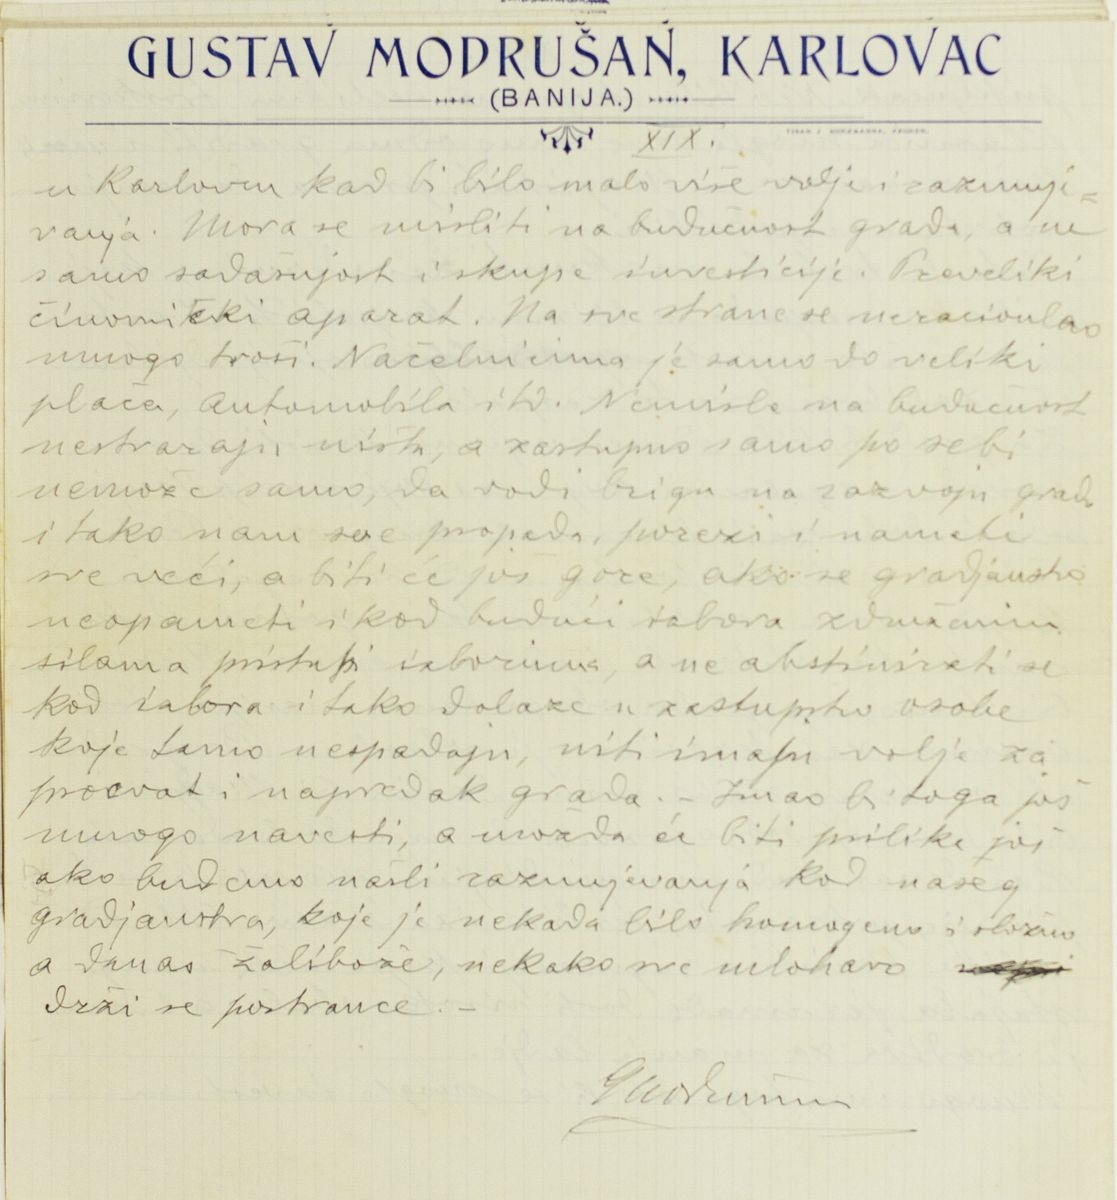 GUSTAV MODRUŠAN, KARLOVAC
(BANIJA.)
XIX.
u Karlovcu kad bi bilo malo više volje i razumje=
vanja. Mora se misliti na budućnost grada, a ne
samo sadašnjost i skupe investicije. Preveliki
činovnički aparat. Na sve strane se neracionlno
mnogo troši. Načelnicima je samo do veliki
plaća, automobila itd. Nemisle na budućnost
nestvaraju ništa, a zastupstvo samo po sebi
nemože samo, da vodi brigu na razvoju grada
i tako nam sve propada, porezi i nameti
sve veći, a biti će još gore, ako se gradjanstvo
neopameti i kod budući izbora združenim
silama pristupi izborima, a ne abstinirati se
kod izbora i tako dolaze u zastupstvo osobe
koje tamo nespadaju, niti imaju volje za
procvat i napredak grada. – Imao bi toga još
mnogo navesti, a možda će biti prilike još
ako budemo našli razumjevanja kod našeg
gradjanstva, koje je nekada bilo homogeno i složno
a danas žalibože, nekako sve mlohavo
drži se postrance. –
GModrušan